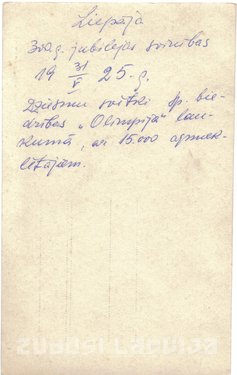 Liepāja
300 g. jubilejas svinības
19 31/V 25. g.
Dziesmu svētki sp. bie-
drības „Olimpija" lau-
kumā, ar 15.000 apmek-
lētājiem.
zudusi latvija